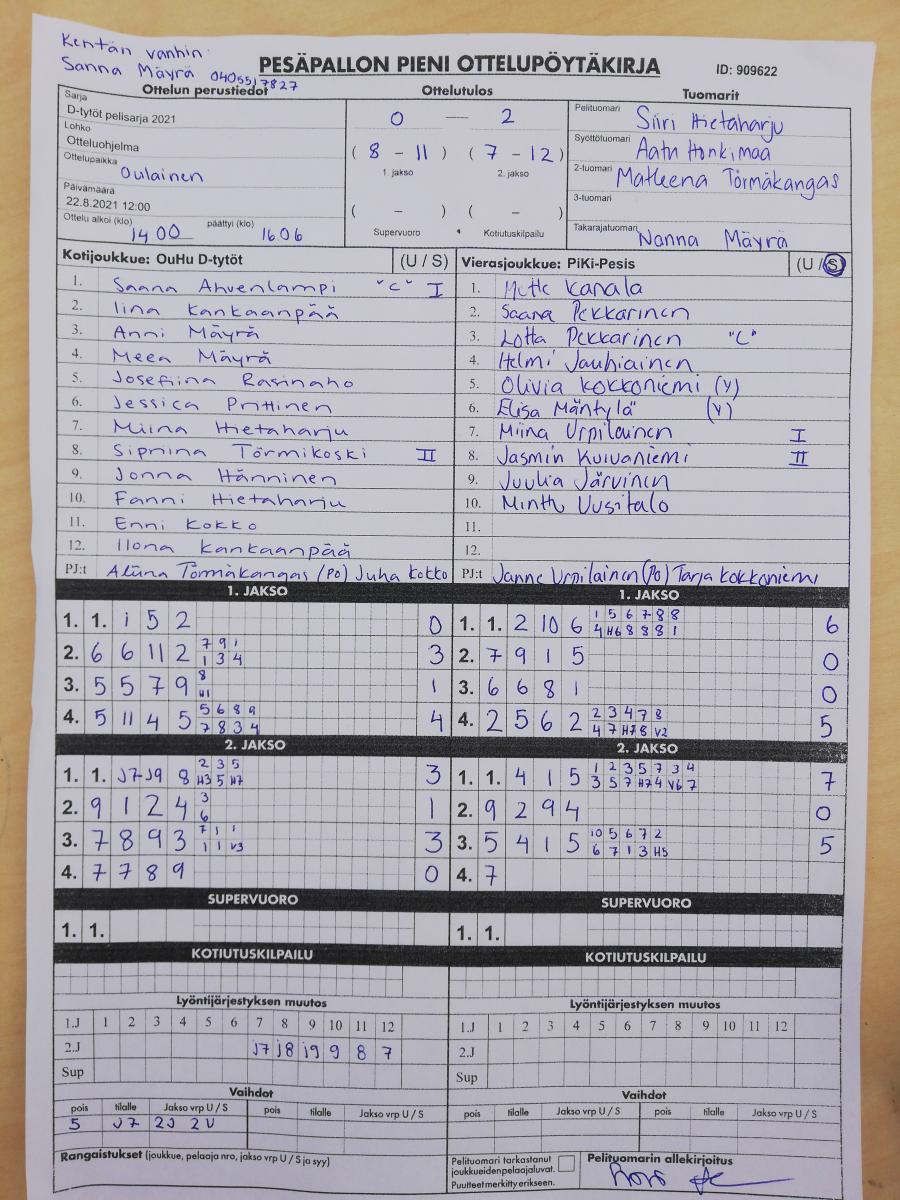 Kentän vanhin:
Sanna Mäyrä 0405517827
PESÄPALLON PIENI OTTELUPÖYTÄKIRJA ID: 909622
Ottelun perustiedot Ottelutulos Tuomarit
Sarja
D-tytöt pelisarja 2021
Lohko
Otteluohjelma
Ottelupaikka
Oulainen
Päivämäärä
22.8.2021 12:00
Ottelu alkoi (klo) päättyi (klo)
14 00 16.06
0 — 2
( 8 - 11 ) ( 7 - 12 )
1. jakso 2. jakso
( - ) ( - )
Supervuoro • Kotiutuskilpailu
Pelituomari Siiri Hietaharju
Syöttötuomari Aatu Honkimaa
2-tuomari Matleena Törmäkangas
3-tuomari
Takarajatuomari Nanna Mäyrä
Kotijoukkue: OuHu D-tytöt (U / S)
1. Saana Ahvenlampi "C" I
2. Iina Kankaanpää
3. Anni Mäyrä
4. Meea Mäyrä
5. Josefiina Rasinaho
6. Jessica Prittinen
7. Miina Hietaharju
8. Törmikoski II
9. Jonna Hänninen
10. Fanni Hietaharju
11. Enni Kokko
12. Ilona Kankaanpää
PJ:t Törmäkangas (PO) Juha Kokko
Vierasjoukkue: PiKi-Pesis (U / S)
1. Kanala
2. Saana Pekkarinen
3. Lotta Pekkarinen "C"
4. Helmi Jauhiainen
5. Olivia Kokkoniemi (V)
6. Elisa Mäntylä (V)
7. Miina Urpilainen I
8. Jasmin Kuivaniemi II
9. Juulia Järvinen
10. Minttu Uusitalo
11.
12.
PJ:t Janne Urpilainen (PO) Tarja Kokkoniemi
1. JAKSO
1. 1. 1 5 2 0
2. 6 6 11 2 7 9 1 3
1 3 4
3. 5 5 7 9 8 1
H1
4. 5 11 4 5 5 6 8 9 4
7 8 3 4
1. JAKSO
1. 1. 2 10 6 1 5 6 7 8 8 6
4 H6 8 8 8 1
2. 7 9 1 5 0
3. 6 6 8 1 0
4. 2 5 6 2 2 3 4 7 8 5
4 7 H7 8 V2
2. JAKSO
1. 1. J7 J9 8 2 3 5 3
H3 5 H7
2. 9 1 2 4 3 1
6
3. 7 8 9 3 7 1 1 3
1 1 V3
4. 7 7 8 9 0
2. JAKSO
1. 1. 4 1 5 1 2 3 5 7 3 4 7
3 5 7 H7 4 V6 7
2. 9 2 9 4 0
3. 5 4 1 5 10 5 6 7 2 5
6 7 1 3 H5
4. 7
SUPERVUORO SUPERVUORO
1. 1. 1. 1.
KOTIUTUSKILPAILU KOTIUTUSKILPAILU
Lyöntijärjestyksen muutos
1.J 1 2 3 4 5 6 7 8 9 10 11 12
2.J J7 J8 J9 9 8 7
Sup
Lyöntijärjestyksen muutos
1.J 1 2 3 4 5 6 7 8 9 10 11 12
2.J
Sup
Vaihdot
pois tilalle Jakso vrp U / S pois tilalle Jakso vrp U / S
5 J7 2J 2U
Vaihdot
pois tilalle Jakso vrp U / S pois tilalle Jakso vrp U / S
Rangaistukset (joukkue, pelaaja nro, jakso vrp U / S ja syy)
Pelituomari tarkastanut
joukkueidenpelaajaluvat.
Puutteet merkitty erikseen.
Pelituomarin allekirjoitus